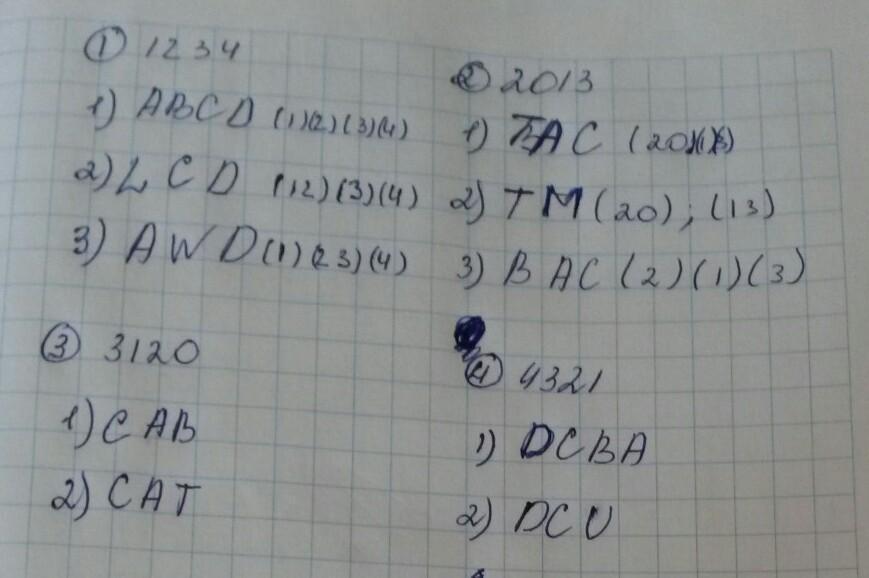 ① 1234
1) ABCD (1)(2)(3)(4)
2) L C D (12)(3)(4)
3) A W D (1)(23)(4)
② 2013
1) TAC (20)(1)(3)
2) TM (20); (13)
3) BAC (2)(1)(3)
③ 3120
1) CAB
2) CAT
④ 4321
1) DCBA
2) DCU